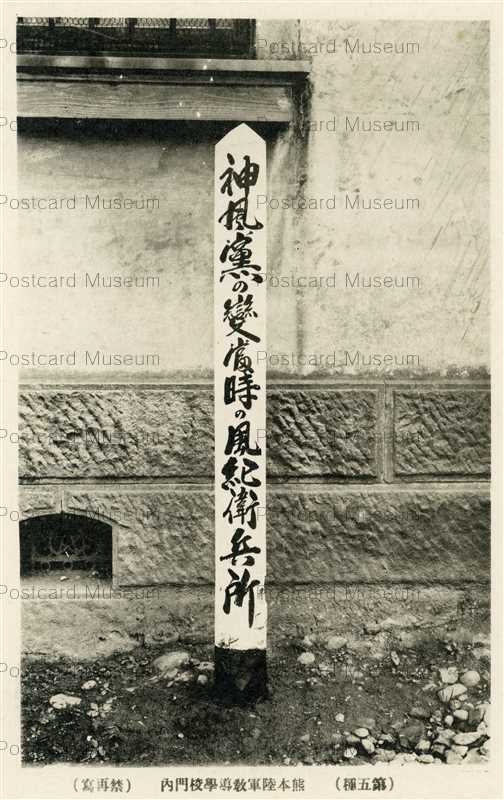 神風黨の變當時の風紀衛兵所
(第五種) 熊本陸軍敎導學校門內 (禁再寫)
Postcard Museum